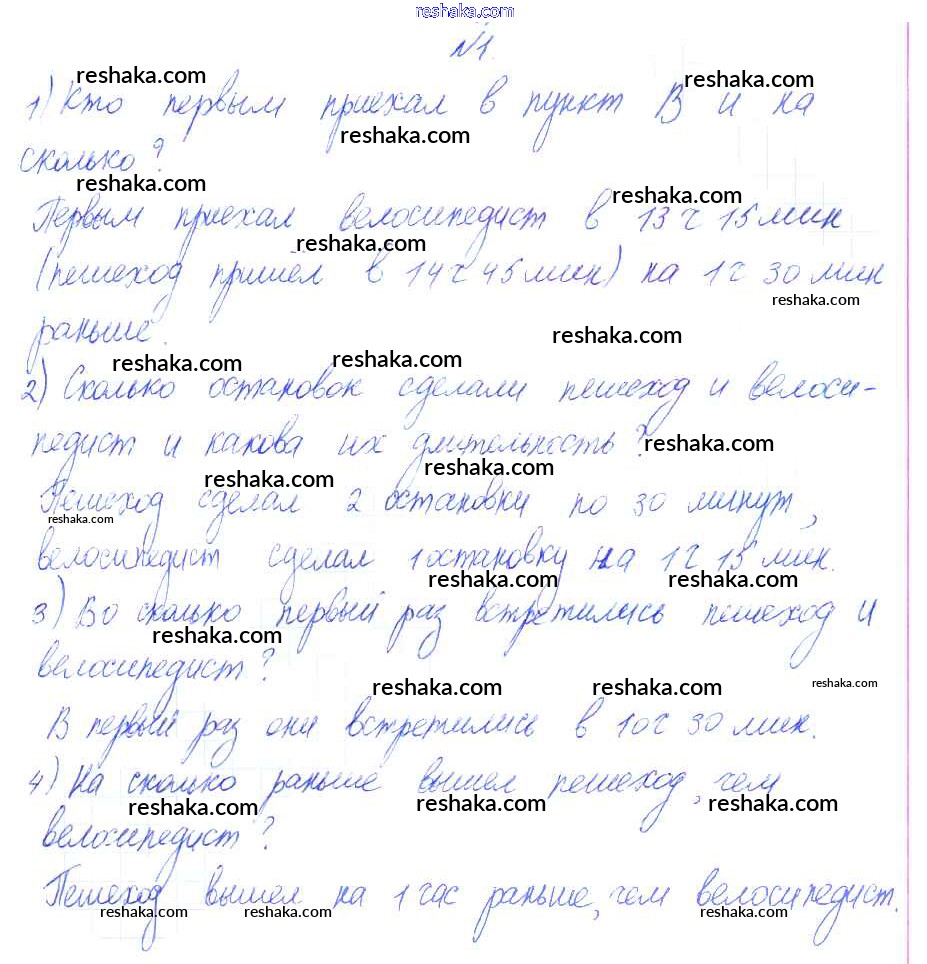 reshaka.com
№1.
reshaka.com reshaka.com
1) Кто первым приехал в пункт В и на
reshaka.com
сколько?
reshaka.com reshaka.com
Первым приехал велосипедист в 13 ч 15 мин
reshaka.com
(пешеход пришёл в 14 ч 45 мин) на 1 ч 30 мин
reshaka.com
раньше.
reshaka.com
reshaka.com reshaka.com
2) Сколько остановок сделали пешеход и велоси-
педист и какова их длительность?
reshaka.com
reshaka.com reshaka.com
Пешеход сделал 2 остановки по 30 минут,
reshaka.com
велосипедист сделал 1 остановку на 1 ч 15 мин.
reshaka.com reshaka.com
3) Во сколько первый раз встретились пешеход и
reshaka.com
велосипедист?
reshaka.com reshaka.com reshaka.com
В первый раз они встретились в 10 ч 30 мин.
4) На сколько раньше вышел пешеход, чем
reshaka.com reshaka.com reshaka.com
велосипедист?
Пешеход вышел на 1 час раньше, чем велосипедист.
reshaka.com reshaka.com reshaka.com reshaka.com